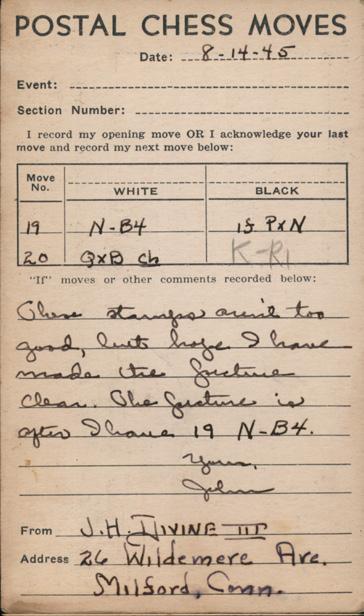 POSTAL CHESS MOVES
Date: 8-14-45
Event:
Section Number:
I record my opening move OR I acknowledge your last
move and record my next move below:
Move No. WHITE BLACK
19 N-B4 if PxN
20 QxB ch K-R1
"If" moves or other comments recorded below:
These stamps aren't too
good, but hope I have
made the picture
clear. The picture is
after I have 19 N-B4.
Yours,
John
From J.H. DIVINE III
Address 26 Wildemere Ave.
Milford, Conn.